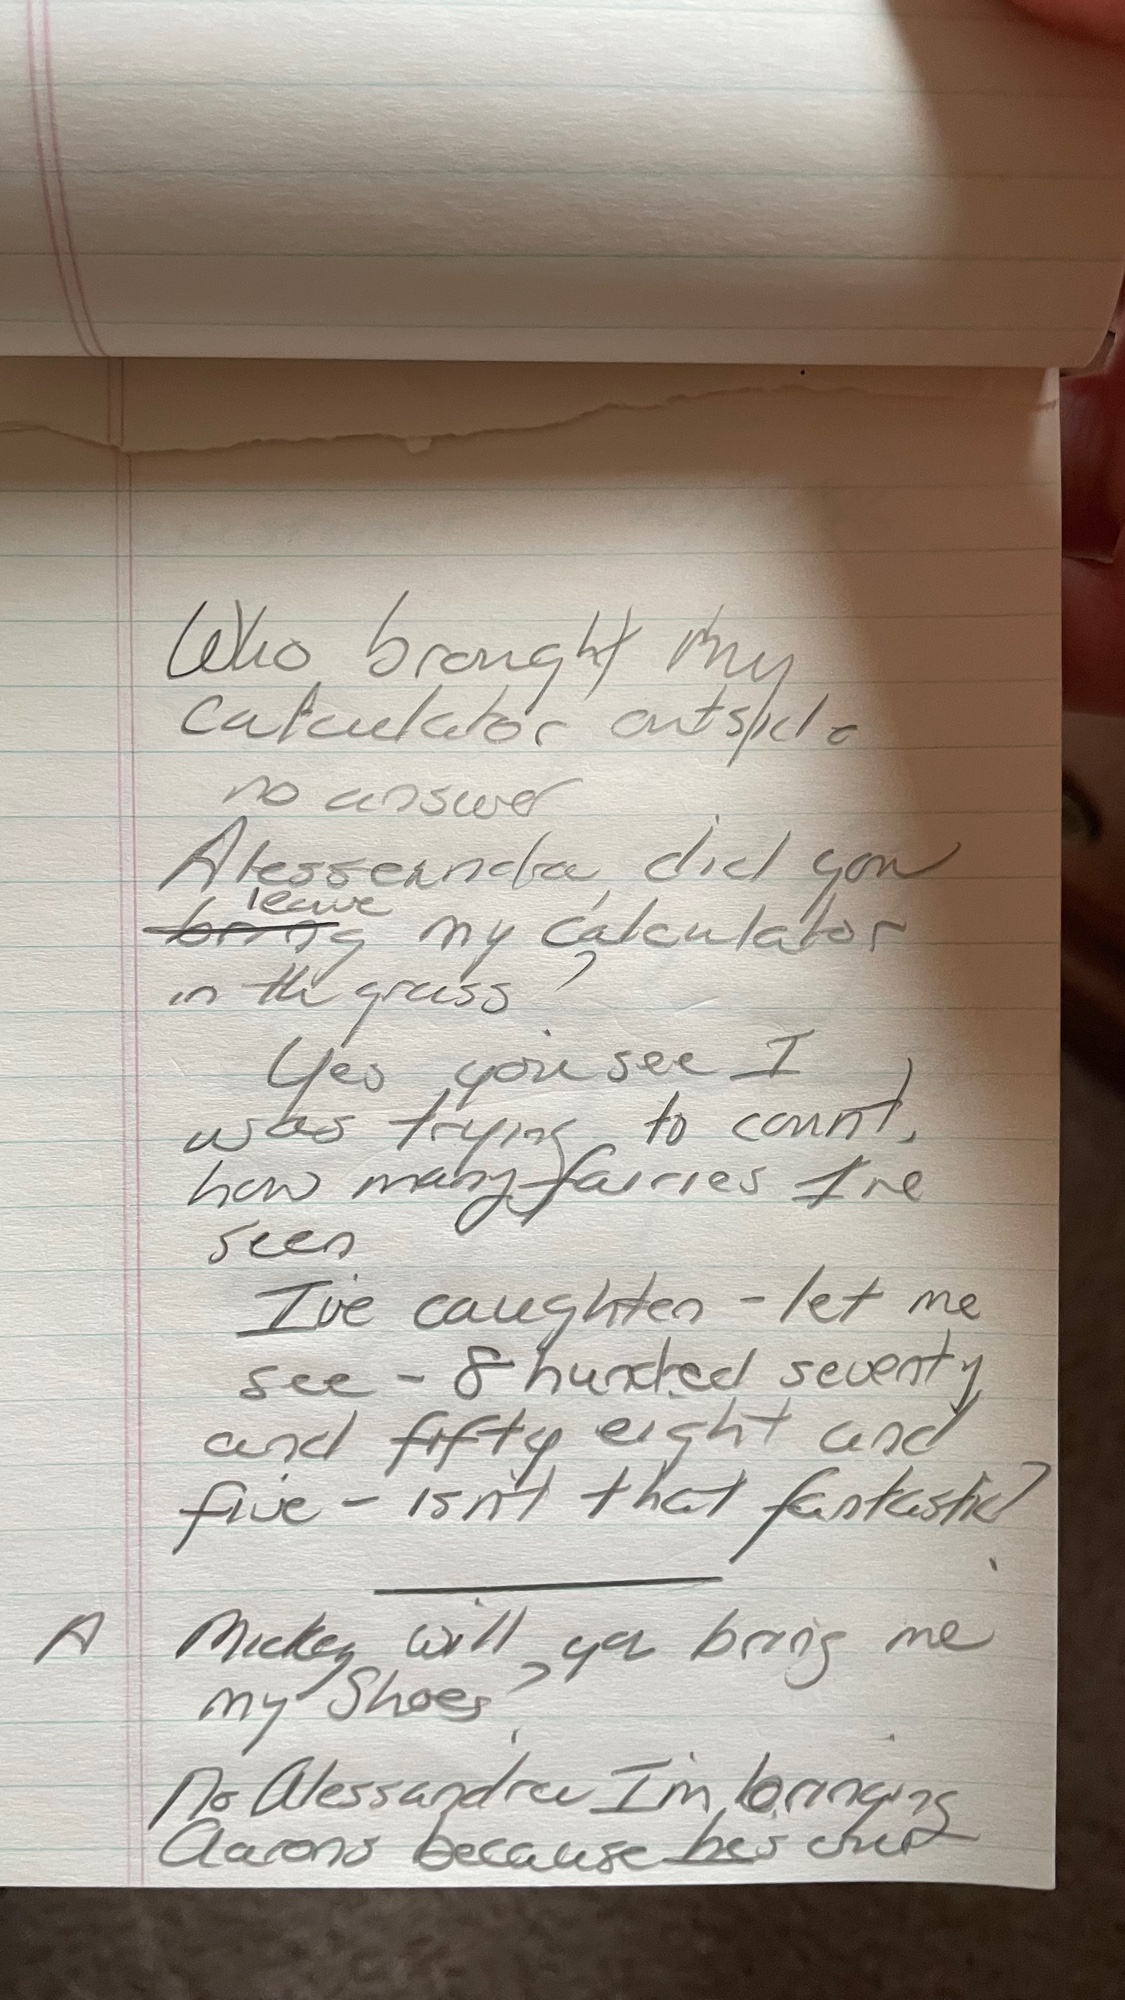 Who brought my
Calculator outside
no answer
Alessandra, did you
leave
bring my calculator
in the grass?
Yes you see I
was trying to count,
how many fairies I've
seen
I've caughten - let me
see - 8 hundred seventy
and fifty eight and
five - isn't that fantastic?
A Mickey will you bring me
my Shoes?
No Alessandra I'm bringing
Aarons because he's